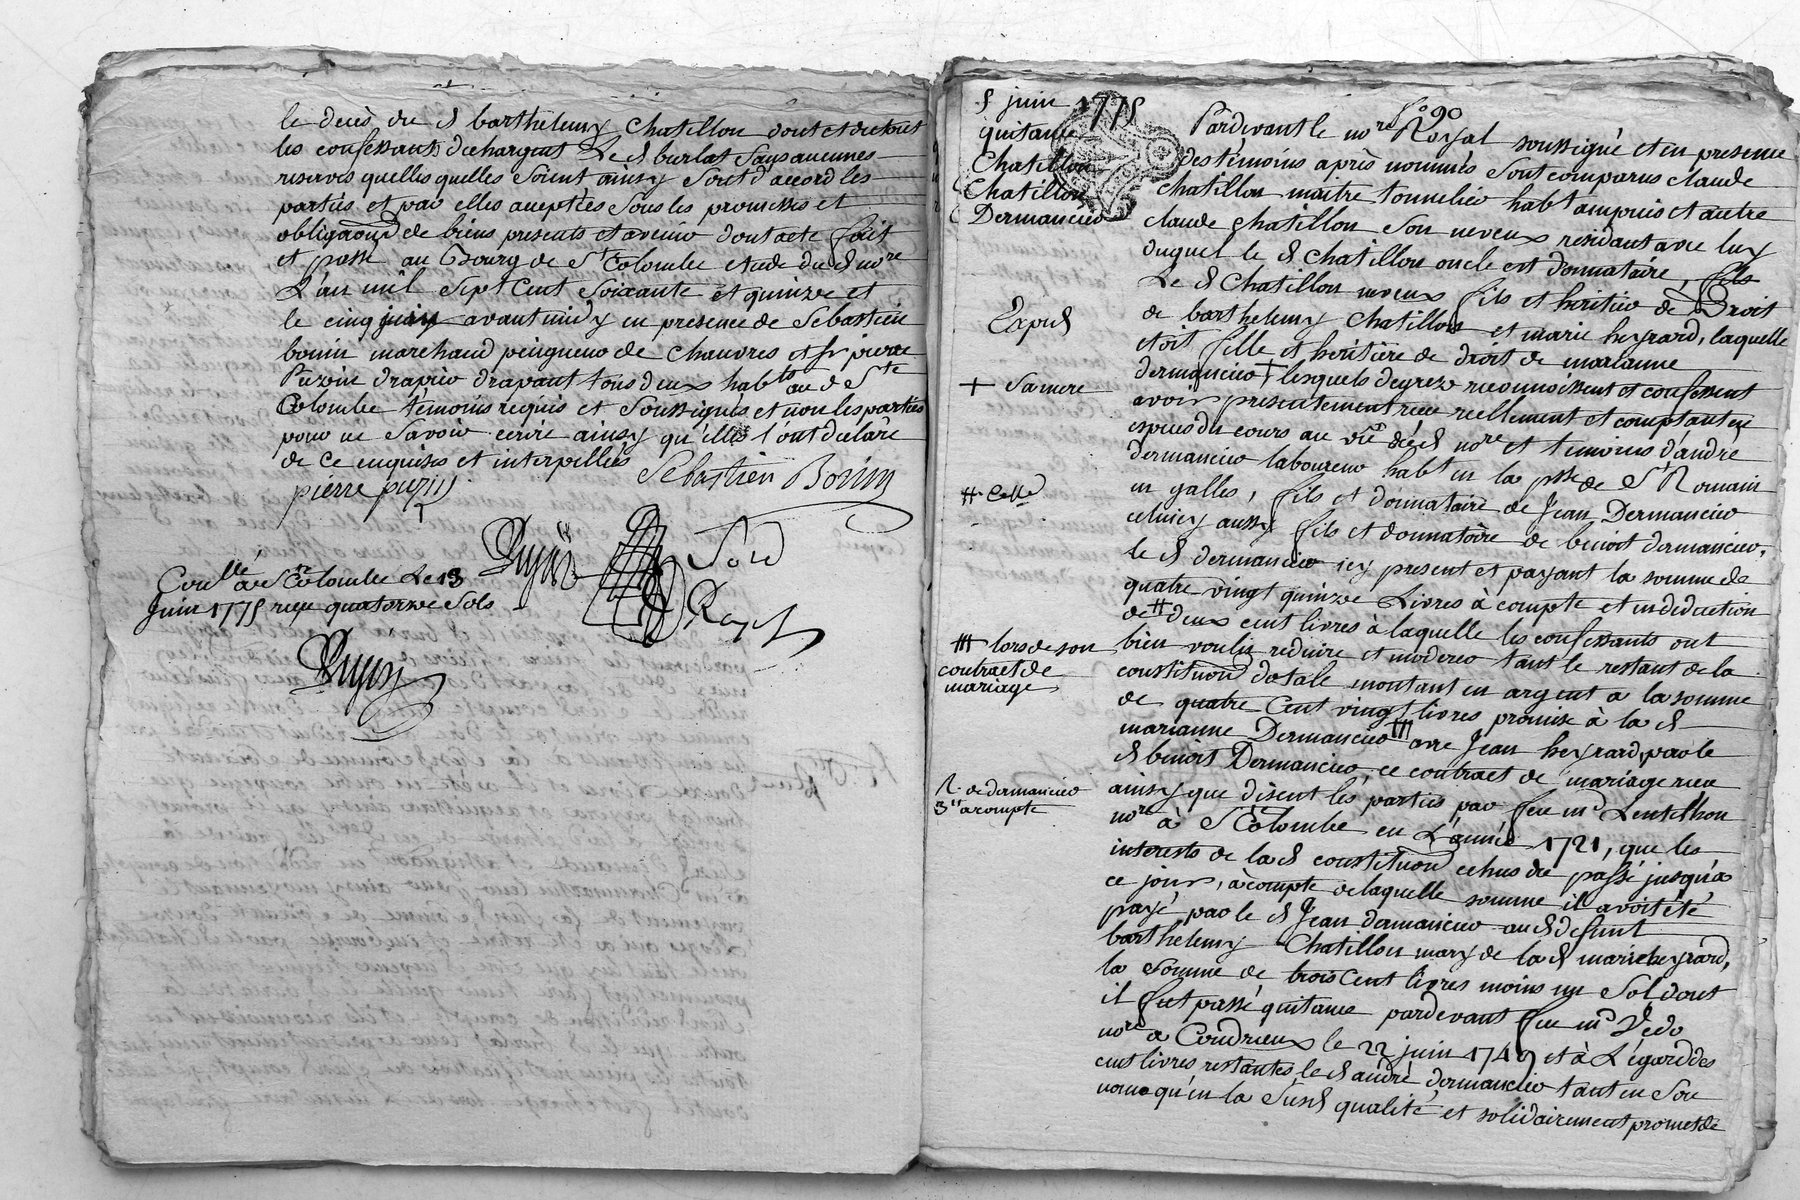 le deces du d barthelemy Chatillon dont et du tout
les confessants dechargent Le d burlat sans aucunes
reserves quelles quelles soient ainsy sont d'accord les
parties et par elles acceptées sous les promesses et
obligaons de biens presents et avenir dont acte fait
et passé au Bourg de Ste Colombe etude du d nore
L'an mil sept cent soixante et quinze et
le cinq juin avant midy en presence de Sebastien
bonin marchand peigneur de chanvres et sr pierre
Puzin drapier drapant tous deux habts au d Ste
Colombe temoins requis et soussignés et non les parties
pour ne savoir ecrire ainsy qu'elles l'ont declaré
de ce enquises et interpellées
Sebastien Bonin
pierre puzin
Conllé a Ste Colombe Le 13
Juin 1775 reçu quatorze sols
fo 90
5 juin 1775
quitance
Chatillon
Chatillon
Dermancieu
Expié
+ sa mere
# Celle
## lors de son
contract de
mariage
a compte
Pardevant le nore Royal soussigné et en presence
des témoins après nommés sont comparus claude
Chatillon maitre tonnelier habt ampuis et autre
claude chatillon son neveux residant avec luy
duquel le d Chatillon oncle est donnataire, fils
Le d Chatillon neveux fils et heritier de Droit
de barthelemy Chatillon et marie heyrard, laquelle
etoit fille et heritière de droit de marianne
dermancieu + lesquels de grez reconnoissent et confessent
avoir presentement reçu reellement et comptant en
espèces du cours au vû des d nore et temoins d'andré
Dermancieu laboureur habt en la psse de St Romain
en galles, fils et donnataire de Jean Dermancieu
celuicy aussy fils et donnatoire de benoit dermancieu,
le d dermancieu icy present et payant la somme de
quatre vingt quinze Livres à compte et en deduction
de # deux cent livres à laquelle les confessants ont
bien voulu reduire et moderer tant le restant de la
constituon dotale montant en argent a la somme
de quatre Cent vingt livres promise à la d
marianne Dermancieu ## avec Jean heyrard, par le
d benoit Dermancieu, ce contract de mariage reçu
ainsy que disent les parties par feu me Lentilhon
nore à Ste Colombe en L'année 1721, que les
interests de la d constituon echus du passé jusqu'à
ce jour, à compte de laquelle somme il avoit été
payé par le d Jean dermancieu au d defunt
barthelemy Chatillon mary de la d marie heyrard,
la somme de trois Cent livres moins un sol dont
il fut passé quitance pardevant feu me Vedo
nore a Condrieux le 22 juin 1749 et à L'égard des
cent livres restantes le d andré dermancieu tant en son
nom qu'en la susd qualité et solidairement promet de